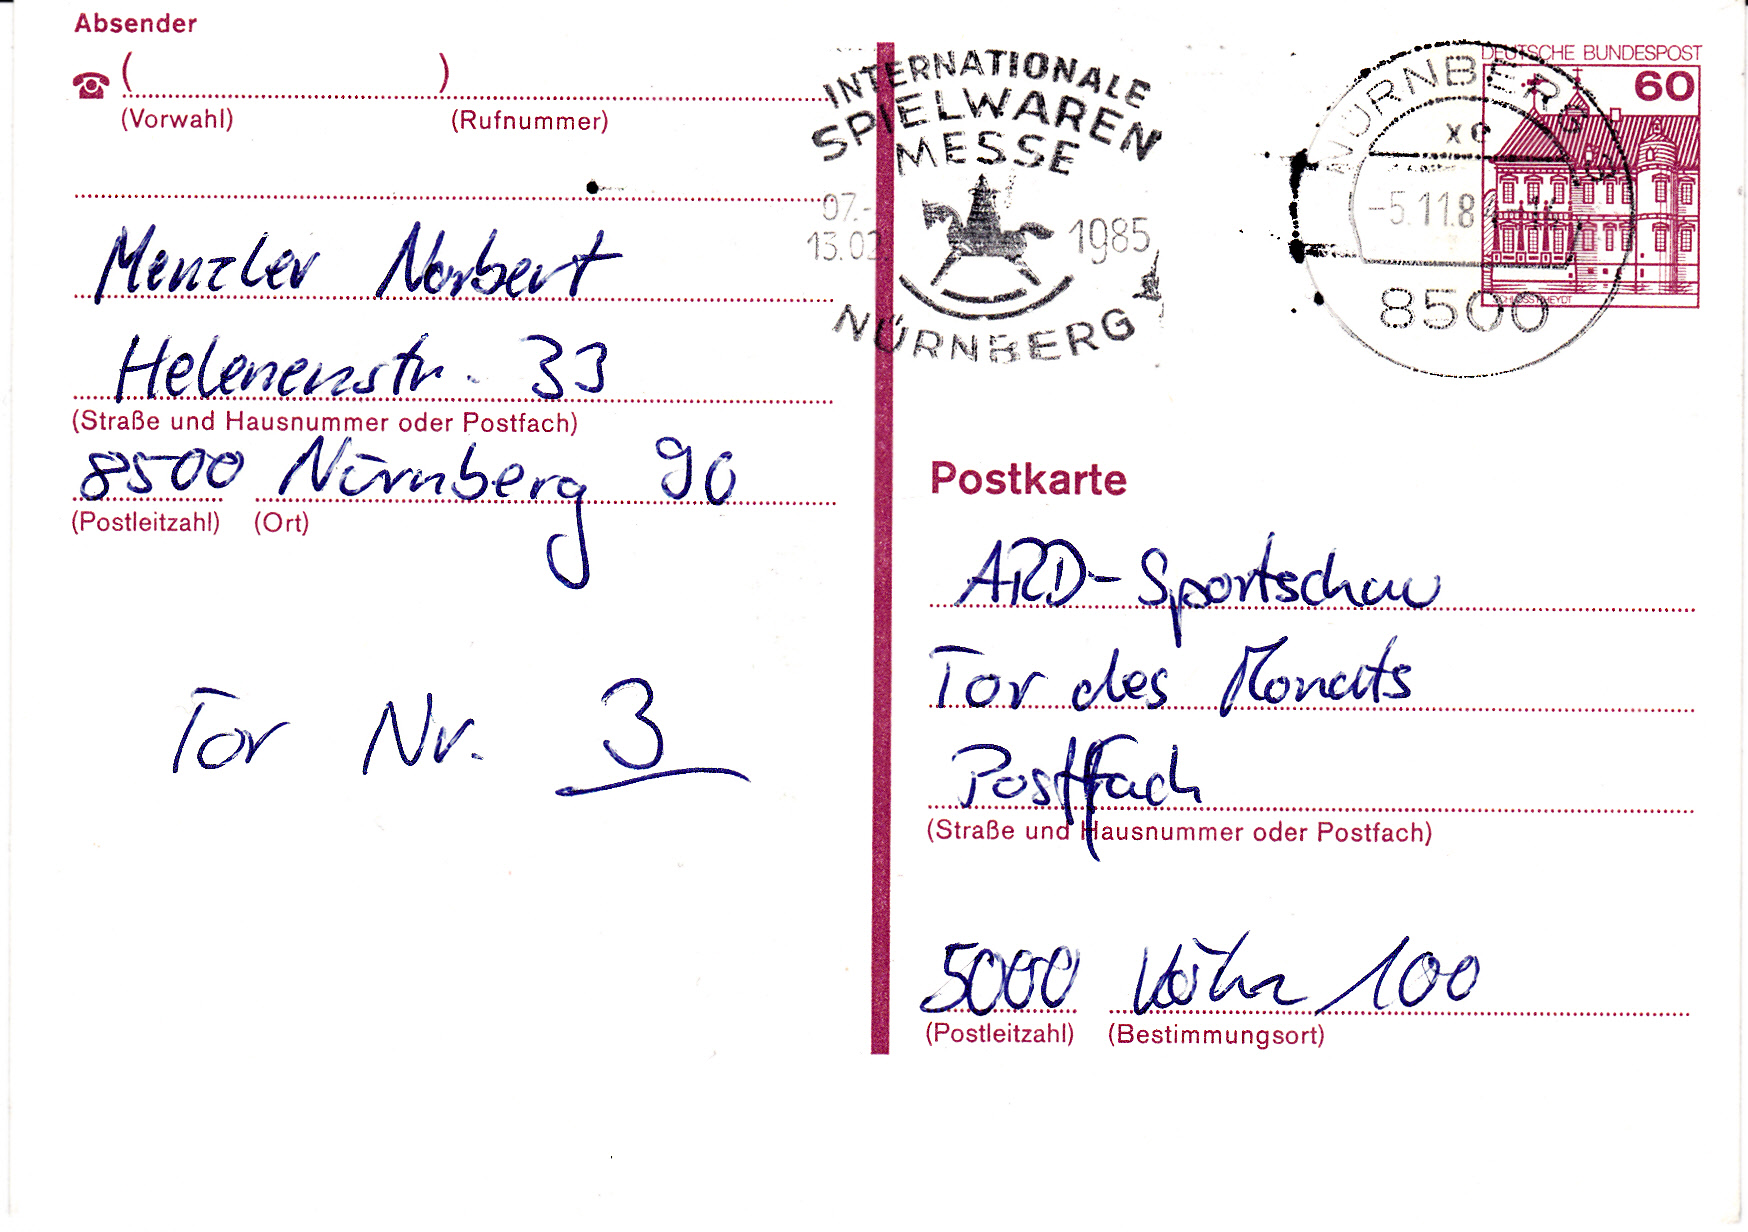 Absender
( )
(Vorwahl) (Rufnummer)
Menzler Norbert
Helenenstr. 33
(Straße und Hausnummer oder Postfach)
8500 Nürnberg 90
(Postleitzahl) (Ort)
Tor Nr. 3
INTERNATIONALE
SPIELWAREN
MESSE
07.-
13.02
1985
NÜRNBERG
DEUTSCHE BUNDESPOST
60
NÜRNBERG
xc
-5.11.84
8500
Postkarte
ARD-Sportschau
Tor des Monats
Postfach
(Straße und Hausnummer oder Postfach)
5000 Köln 100
(Postleitzahl) (Bestimmungsort)